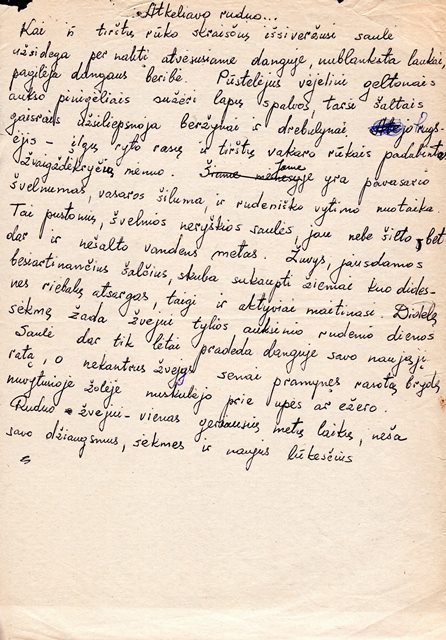 Atkeliavo ruduo...
Kai iš tirštų rūko skraisčių išsiveržusi saulė
užsidega per naktį atvėsusiame danguje, nublanksta laukai,
pagilėja dangaus beribė. Pūstelėjus vėjeliui geltonais
aukso pinigėliais sužėri lapų spalvos, tarsi šaltais
gaisrais užsiliepsnoja beržynai ir drebulynai, jo rugs-
ėjis – ilgų ryto rasų ir tirštų vakaro rūkais padabintas
žvaigždėkryčių mėnuo. Šiame mėnesyje Jame yra pavasario
švelnumas, vasaros šiluma, ir rudeniško vytimo nuotaika.
Tai pustonių, švelnios neryškios saulės, jau nebe šilto, bet
dar ir nešalto vandens metas. Žuvys, jausdamos
besiartinančius šalčius, skuba sukaupti žiemai kuo dides-
nes riebalų atsargas, taigi ir aktyviai maitinasi. Didelę
sėkmę žada žvejui tylios auksinio rudenio dienos
Saulė dar tik lėtai pradeda danguje savo naująjį
ratą, o nekantrus žvejys senai pramynęs rasotą brydę
nuvytusioje žolėje nuskubėjo prie upės ar ežero.
Ruduo žvejui – vienas geriausių metų laikų, neša
savo džiaugsmus, sėkmes ir naujus lūkesčius